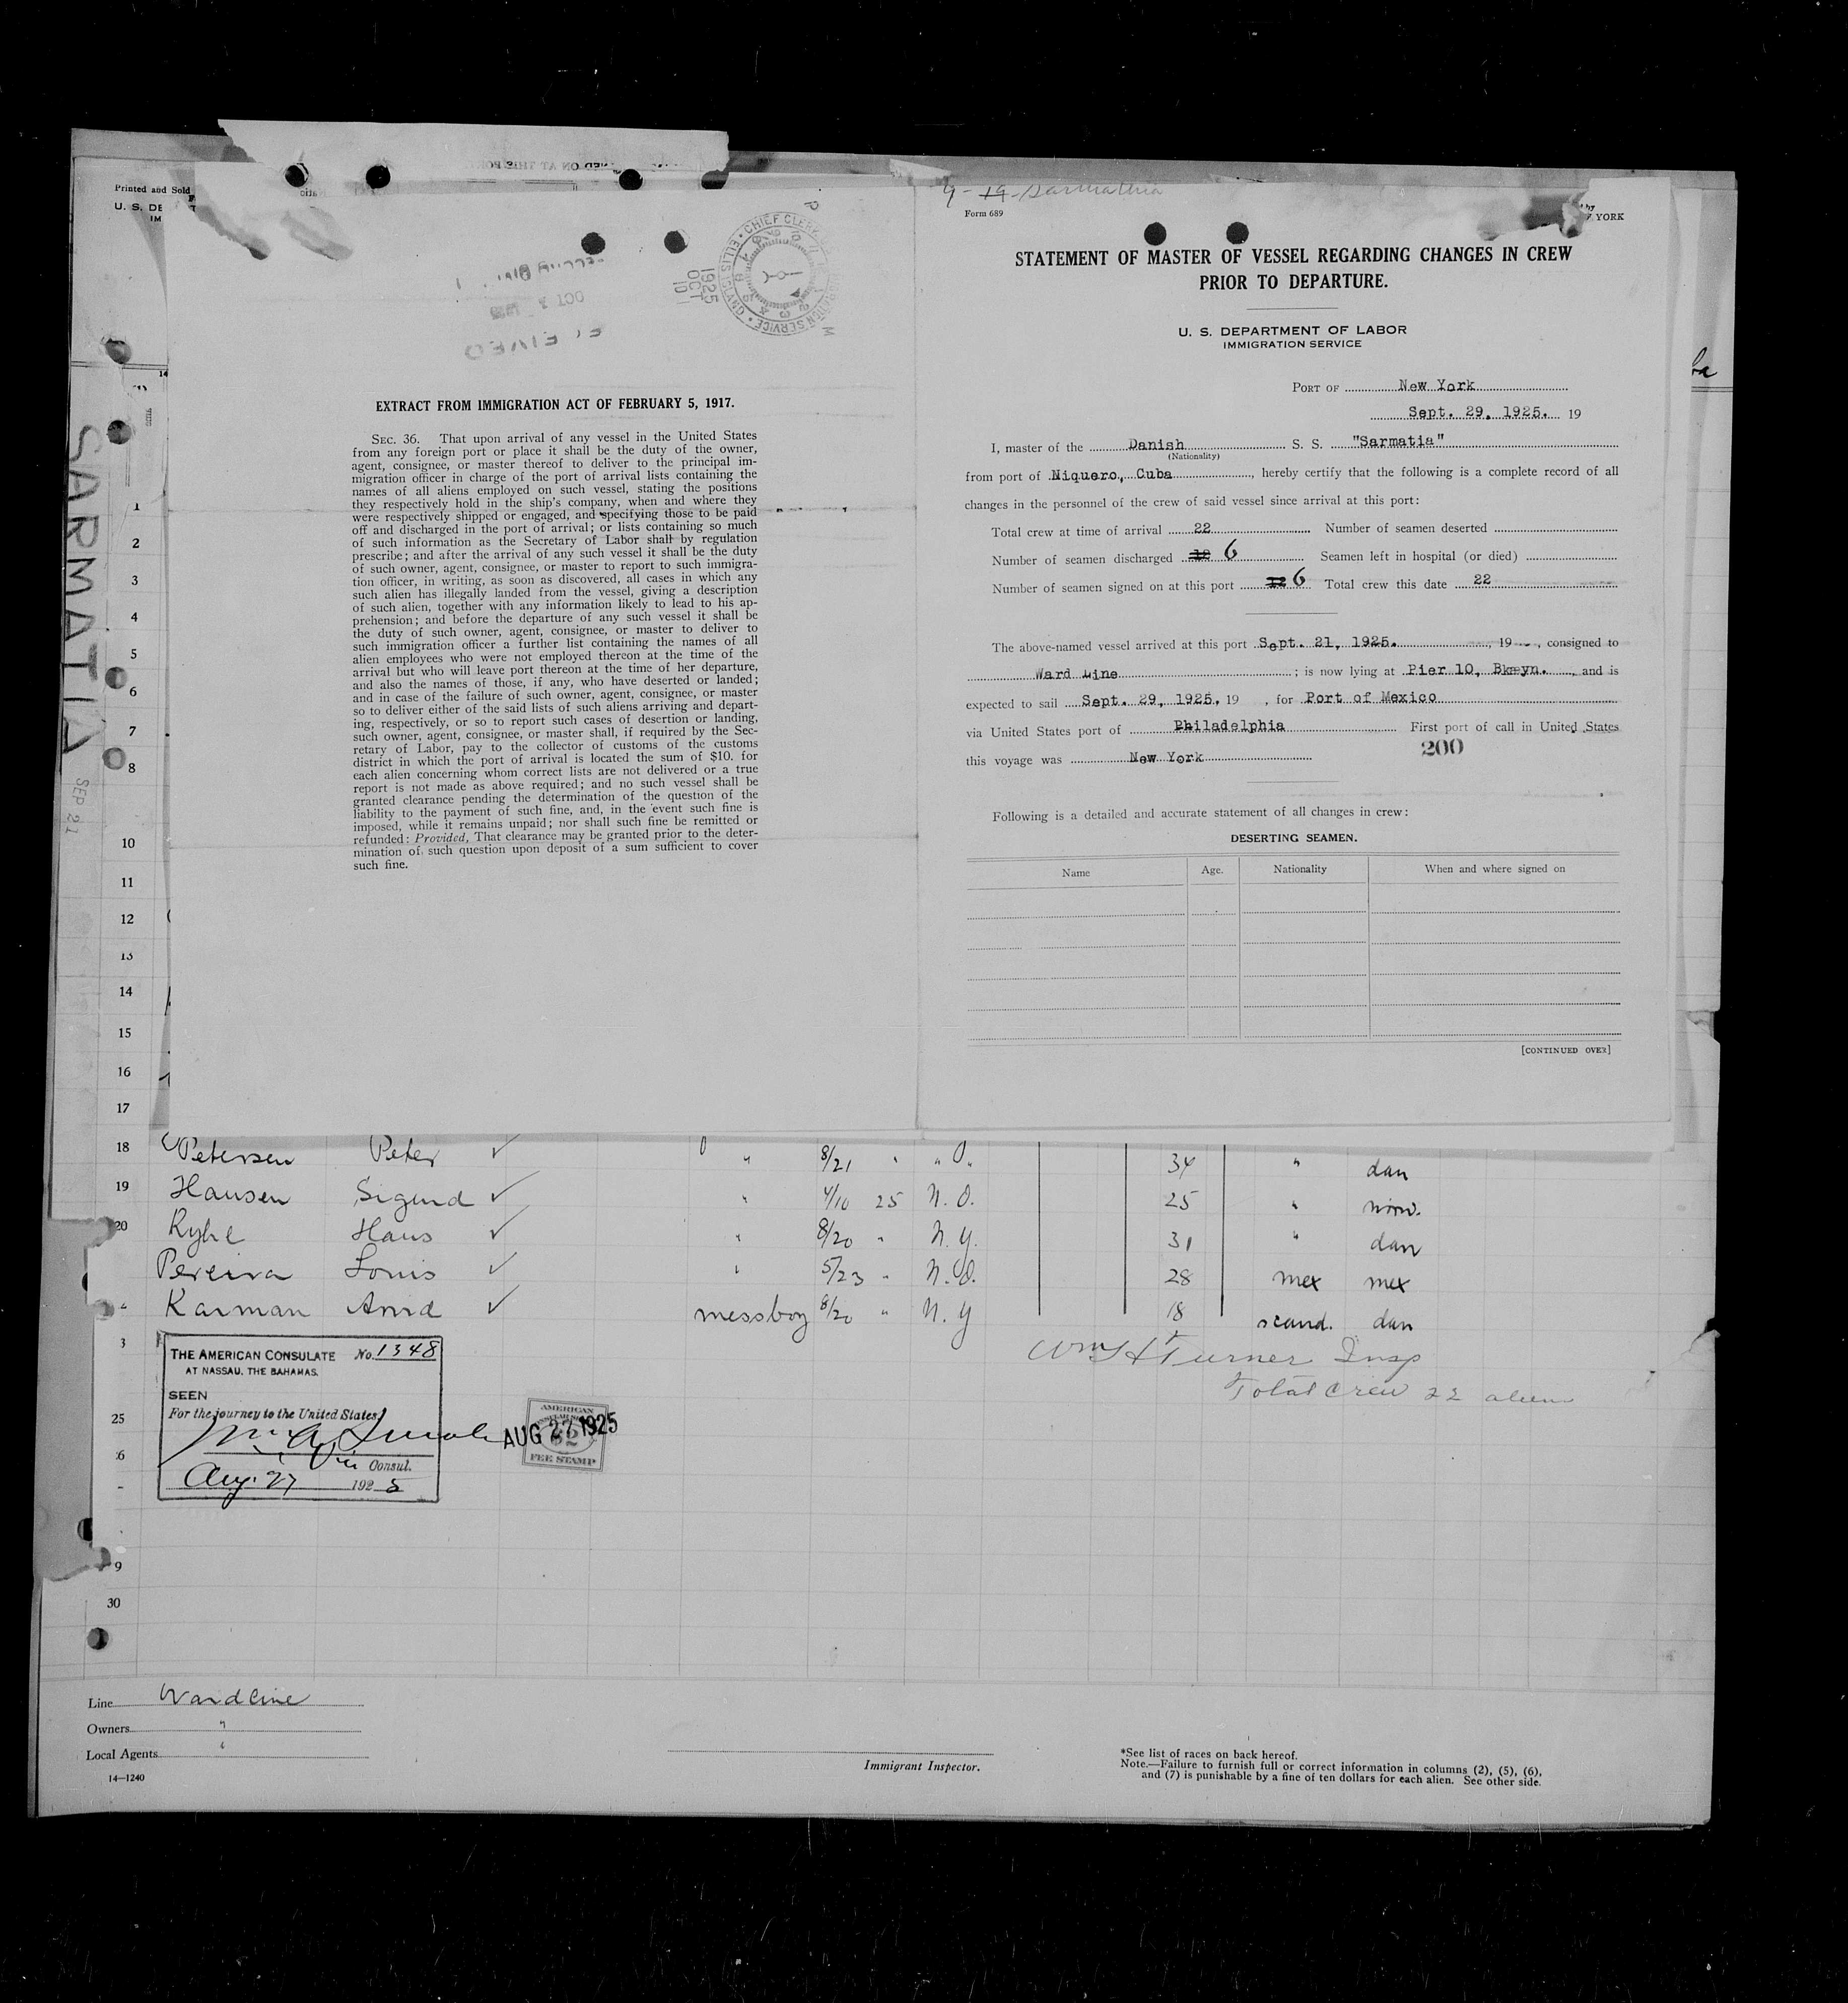 Printed and Sold
U. S. DE
IM
SARMATIA
SEP 21
CHIEF CLERK
ELLIS ISLAND
1925
OCT
10
EXTRACT FROM IMMIGRATION ACT OF FEBRUARY 5, 1917.
SEC. 36. That upon arrival of any vessel in the United States
from any foreign port or place it shall be the duty of the owner,
agent, consignee, or master thereof to deliver to the principal im-
migration officer in charge of the port of arrival lists containing the
names of all aliens employed on such vessel, stating the positions
they respectively hold in the ship's company, when and where they
were respectively shipped or engaged, and specifying those to be paid
off and discharged in the port of arrival; or lists containing so much
of such information as the Secretary of Labor shall by regulation
prescribe; and after the arrival of any such vessel it shall be the duty
of such owner, agent, consignee, or master to report to such immigra-
tion officer, in writing, as soon as discovered, all cases in which any
such alien has illegally landed from the vessel, giving a description
of such alien, together with any information likely to lead to his ap-
prehension; and before the departure of any such vessel it shall be
the duty of such owner, agent, consignee, or master to deliver to
such immigration officer a further list containing the names of all
alien employees who were not employed thereon at the time of the
arrival but who will leave port thereon at the time of her departure,
and also the names of those, if any, who have deserted or landed;
and in case of the failure of such owner, agent, consignee, or master
so to deliver either of the said lists of such aliens arriving and depart-
ing, respectively, or so to report such cases of desertion or landing,
such owner, agent, consignee, or master shall, if required by the Sec-
retary of Labor, pay to the collector of customs of the customs
district in which the port of arrival is located the sum of $10. for
each alien concerning whom correct lists are not delivered or a true
report is not made as above required; and no such vessel shall be
granted clearance pending the determination of the question of the
liability to the payment of such fine, and, in the event such fine is
imposed, while it remains unpaid; nor shall such fine be remitted or
refunded: Provided, That clearance may be granted prior to the deter-
mination of such question upon deposit of a sum sufficient to cover
such fine.
Form 689
by
YORK
STATEMENT OF MASTER OF VESSEL REGARDING CHANGES IN CREW
PRIOR TO DEPARTURE.
U. S. DEPARTMENT OF LABOR
IMMIGRATION SERVICE
PORT OF New York
Sept. 29, 1925. 19
I, master of the Danish S. S. "Sarmatia"
(Nationality)
from port of Niquero, Cuba, hereby certify that the following is a complete record of all
changes in the personnel of the crew of said vessel since arrival at this port:
Total crew at time of arrival 22 Number of seamen deserted
Number of seamen discharged 6 Seamen left in hospital (or died)
Number of seamen signed on at this port 12 6 Total crew this date 22
The above-named vessel arrived at this port Sept. 21, 1925. , 19 , consigned to
Ward Line ; is now lying at Pier 10, Bkeyn. , and is
expected to sail Sept. 29, 1925, 19 , for Port of Mexico
via United States port of Philadelphia First port of call in United States
200
this voyage was New York
Following is a detailed and accurate statement of all changes in crew:
DESERTING SEAMEN.
Name Age. Nationality When and where signed on
[CONTINUED OVER]
1
2
3
4
5
6
7
8
10
11
12
13
14
15
16
17
18 Petersen Peter ✓ " 8/21 " " 34 " dan
19 Hansen Sigurd ✓ " 4/10 25 N. O. 25 " norw.
20 Ryhl Hans ✓ " 8/20 " N. Y. 31 " dan
Pereira Louis ✓ " 5/23 " N. O. 28 mex mex
Karman Arvid ✓ messboy 8/20 " N. Y 18 scand. dan
3
Wm H Turner Insp
Total Crew 22 aliens
THE AMERICAN CONSULATE No. 1348
AT NASSAU, THE BAHAMAS.
SEEN
For the journey to the United States
Vice Consul.
Aug. 27 1925
AMERICAN
AUG 27 1925
FEE STAMP
25
6
9
30
Line Wardline
Owners "
Local Agents "
14—1240
Immigrant Inspector.
*See list of races on back hereof.
Note.—Failure to furnish full or correct information in columns (2), (5), (6),
and (7) is punishable by a fine of ten dollars for each alien. See other side.